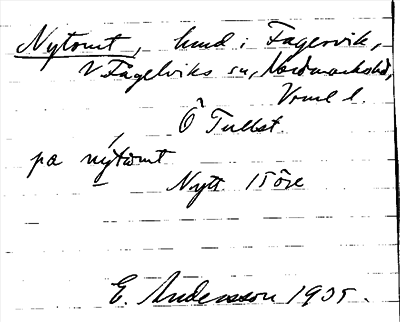 Nytomt, hmd i Fagervik,
V Fågelviks sn, Nordmarks hd,
Vrml l.
Ö Tullst.
på nýtòmt
Nytt 15 öre
E. Andersson 1935.